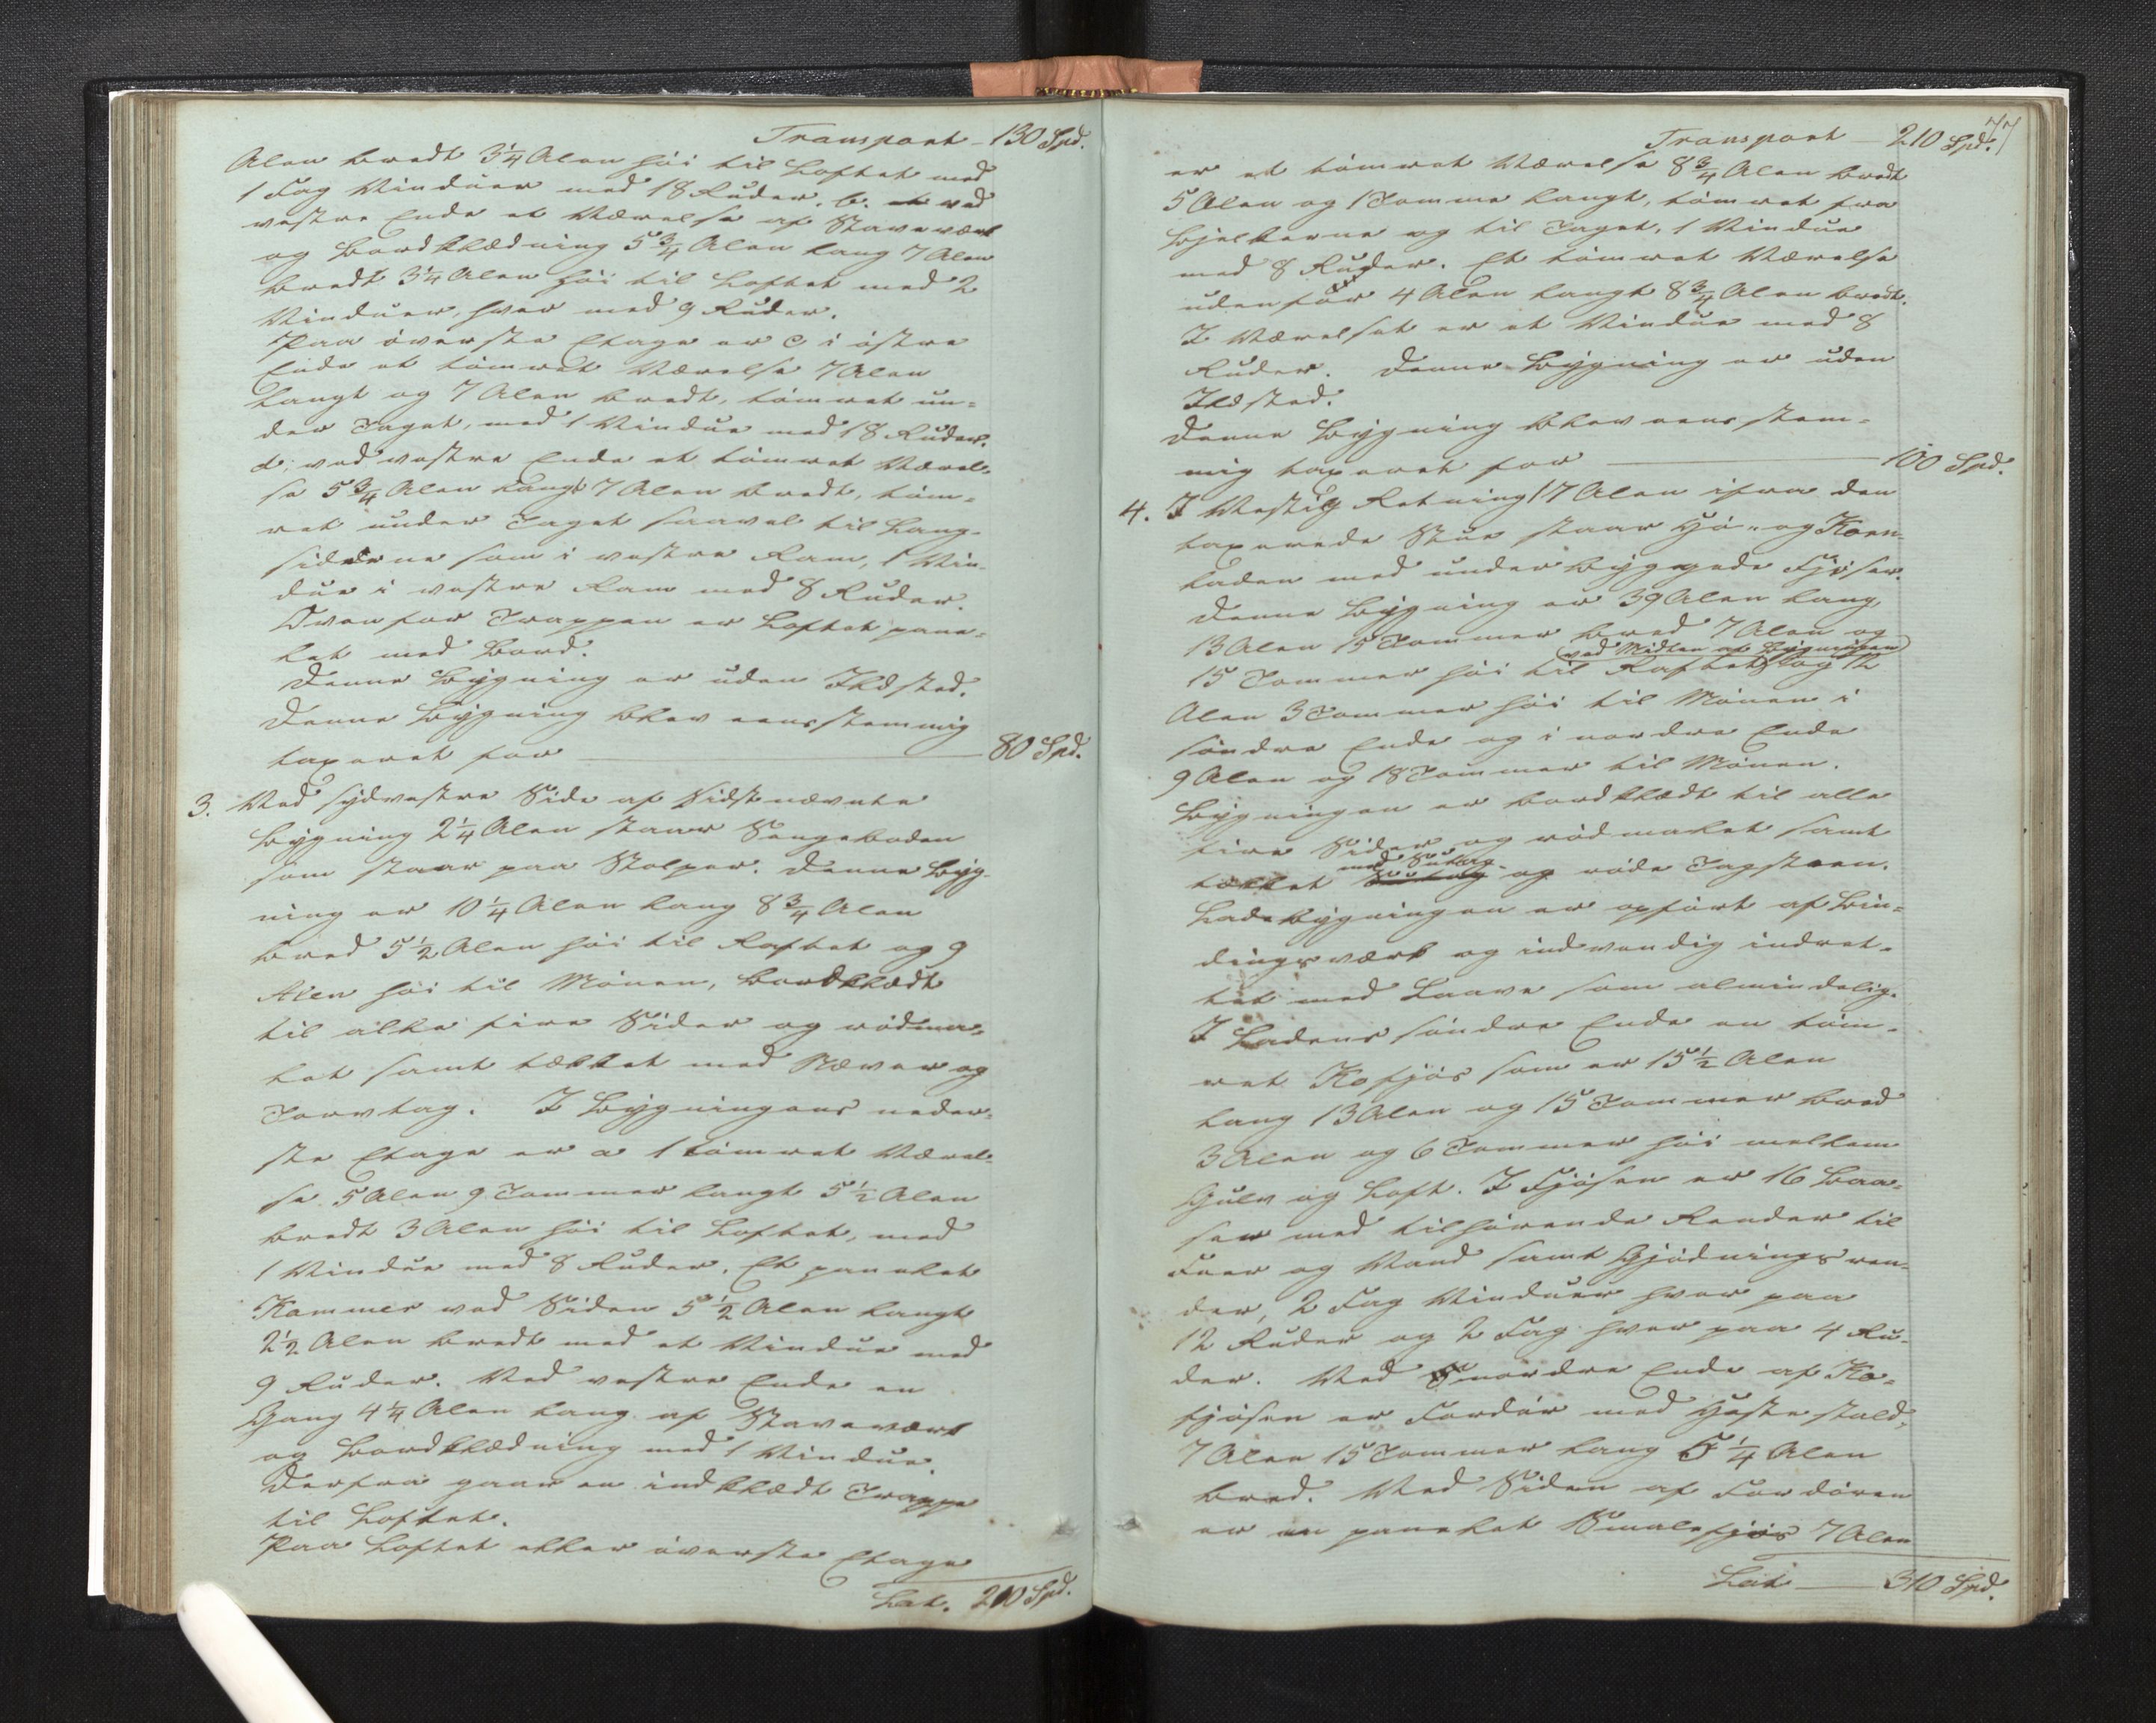 Transport - 130 Spd.
Alen bredt 3¼ Alen høi til Loftet med
1 Fag Vinduer med 18 Ruder. b. et ved
vestre Ende et Værelse af Stavværk
og Bordklædning 5¾ Alen lang 7 Alen
bredt 3¼ Alen høi til Loftet med 2
Vinduer, hver med 9 Ruder.
Paa øverste Etage er c i østre
Ende et tømret Værelse 7 Alen
langt og 7 Alen bredt, tømret un=
der Taget, med 1 Vindue med 18 Ruder.
d: ved vestre Ende et tømret Værel=
se 5¾ Alen langt 7 Alen bredt, tøm=
ret under Taget saavel til Lang=
siderne som i vestre Ram, 1 Vin=
due i vestre Ram med 8 Ruder.
Ovenfor Trappen er Loftet pane=
let med Bord.
Denne Bygning er uden Ildsted.
Denne Bygning blev eensstemmig
taxeret for — 80 Spd.
3. Ved sydvestre Side af sidstnævnte
Bygning 2¼ Alen staar Sengeboden
som staar paa Stolper. Denne Byg=
ning er 10¼ Alen lang 8¾ Alen
bred 5½ Alen høi til Raftet og 9
Alen høi til Mønen, bordklædt
til alle fire Sider og rødma=
let samt tækket med Næver og
Torvtag. I Bygningens neder=
ste Etage er a 1 tømret Værel=
se 5 Alen 9 Tommer langt 5½ Alen
bredt 3 Alen høi til Loftet, med
1 Vindue med 8 Ruder. Et panelet
Kammer ved Siden 5½ Alen langt
2½ Alen bredt med et Vindue med
9 Ruder. Ved vestre Ende en
Gang 4¼ Alen lang af Stavværk
og Bordklædning med 1 Vindue.
Derfra gaar en indklædt Trappe
til Loftet.
Paa Loftet eller øverste Etage
Lat. 210 Spd.
77
Transport — 210 Spd.
er et tømret Værelse 8¾ Alen bredt
5 Alen og 1 Tomme langt, tømret fra
Bjelkerne og til Taget, 1 Vindue
med 8 Ruder. Et tømret Værelse
udenfor 4 Alen langt 8¾ Alen bredt.
I Værelset er et Vindue med 8
Ruder. Denne Bygning er uden
Ildsted.
Denne Bygning blev eensstem=
mig taxeret for — 100 Spd.
4. I Vestlig Retning 17 Alen ifra den
taxerede Stue staar Hø- og Korn=
laden med underbyggede Fjøser.
Denne Bygning er 39 Alen lang,
13 Alen 15 Tommer bred 7 Alen og
(ved Midten af Bygningen)
15 Tommer høi til Raftet og 12
Alen 3 Tommer høi til Mønen i
søndre Ende og i nordre Ende
9 Alen og 18 Tommer til Mønen.
Bygningen er bordklædt til alle
fire Sider og rødmalet samt
med Sutag
tækket og røde Tagsteen.
Ladebygningen er opført af Bin=
dingsværk og indvendig indret=
tet med Laave som almindelig.
I Ladens søndre Ende en tøm=
ret Kofjøs som er 15½ Alen
lang 13 Alen og 15 Tommer bred
3 Alen og 6 Tommer høi mellem
Gulv og Loft. I Fjøsen er 16 Baa=
ser med tilhørende Render til
Foer og Vand samt Gjødningsren=
der, 2 Fag Vinduer hver paa
12 Ruder og 2 Fag hver paa 4 Ru=
der. Ved nordre Ende af Ko=
fjøsen er Fordør med Hestestald,
7 Alen 15 Tommer lang 5¼ Alen
bred. Ved Siden af Fordøren
er en panelet Smalefjøs 7 Alen
Lat. — 310 Spd.